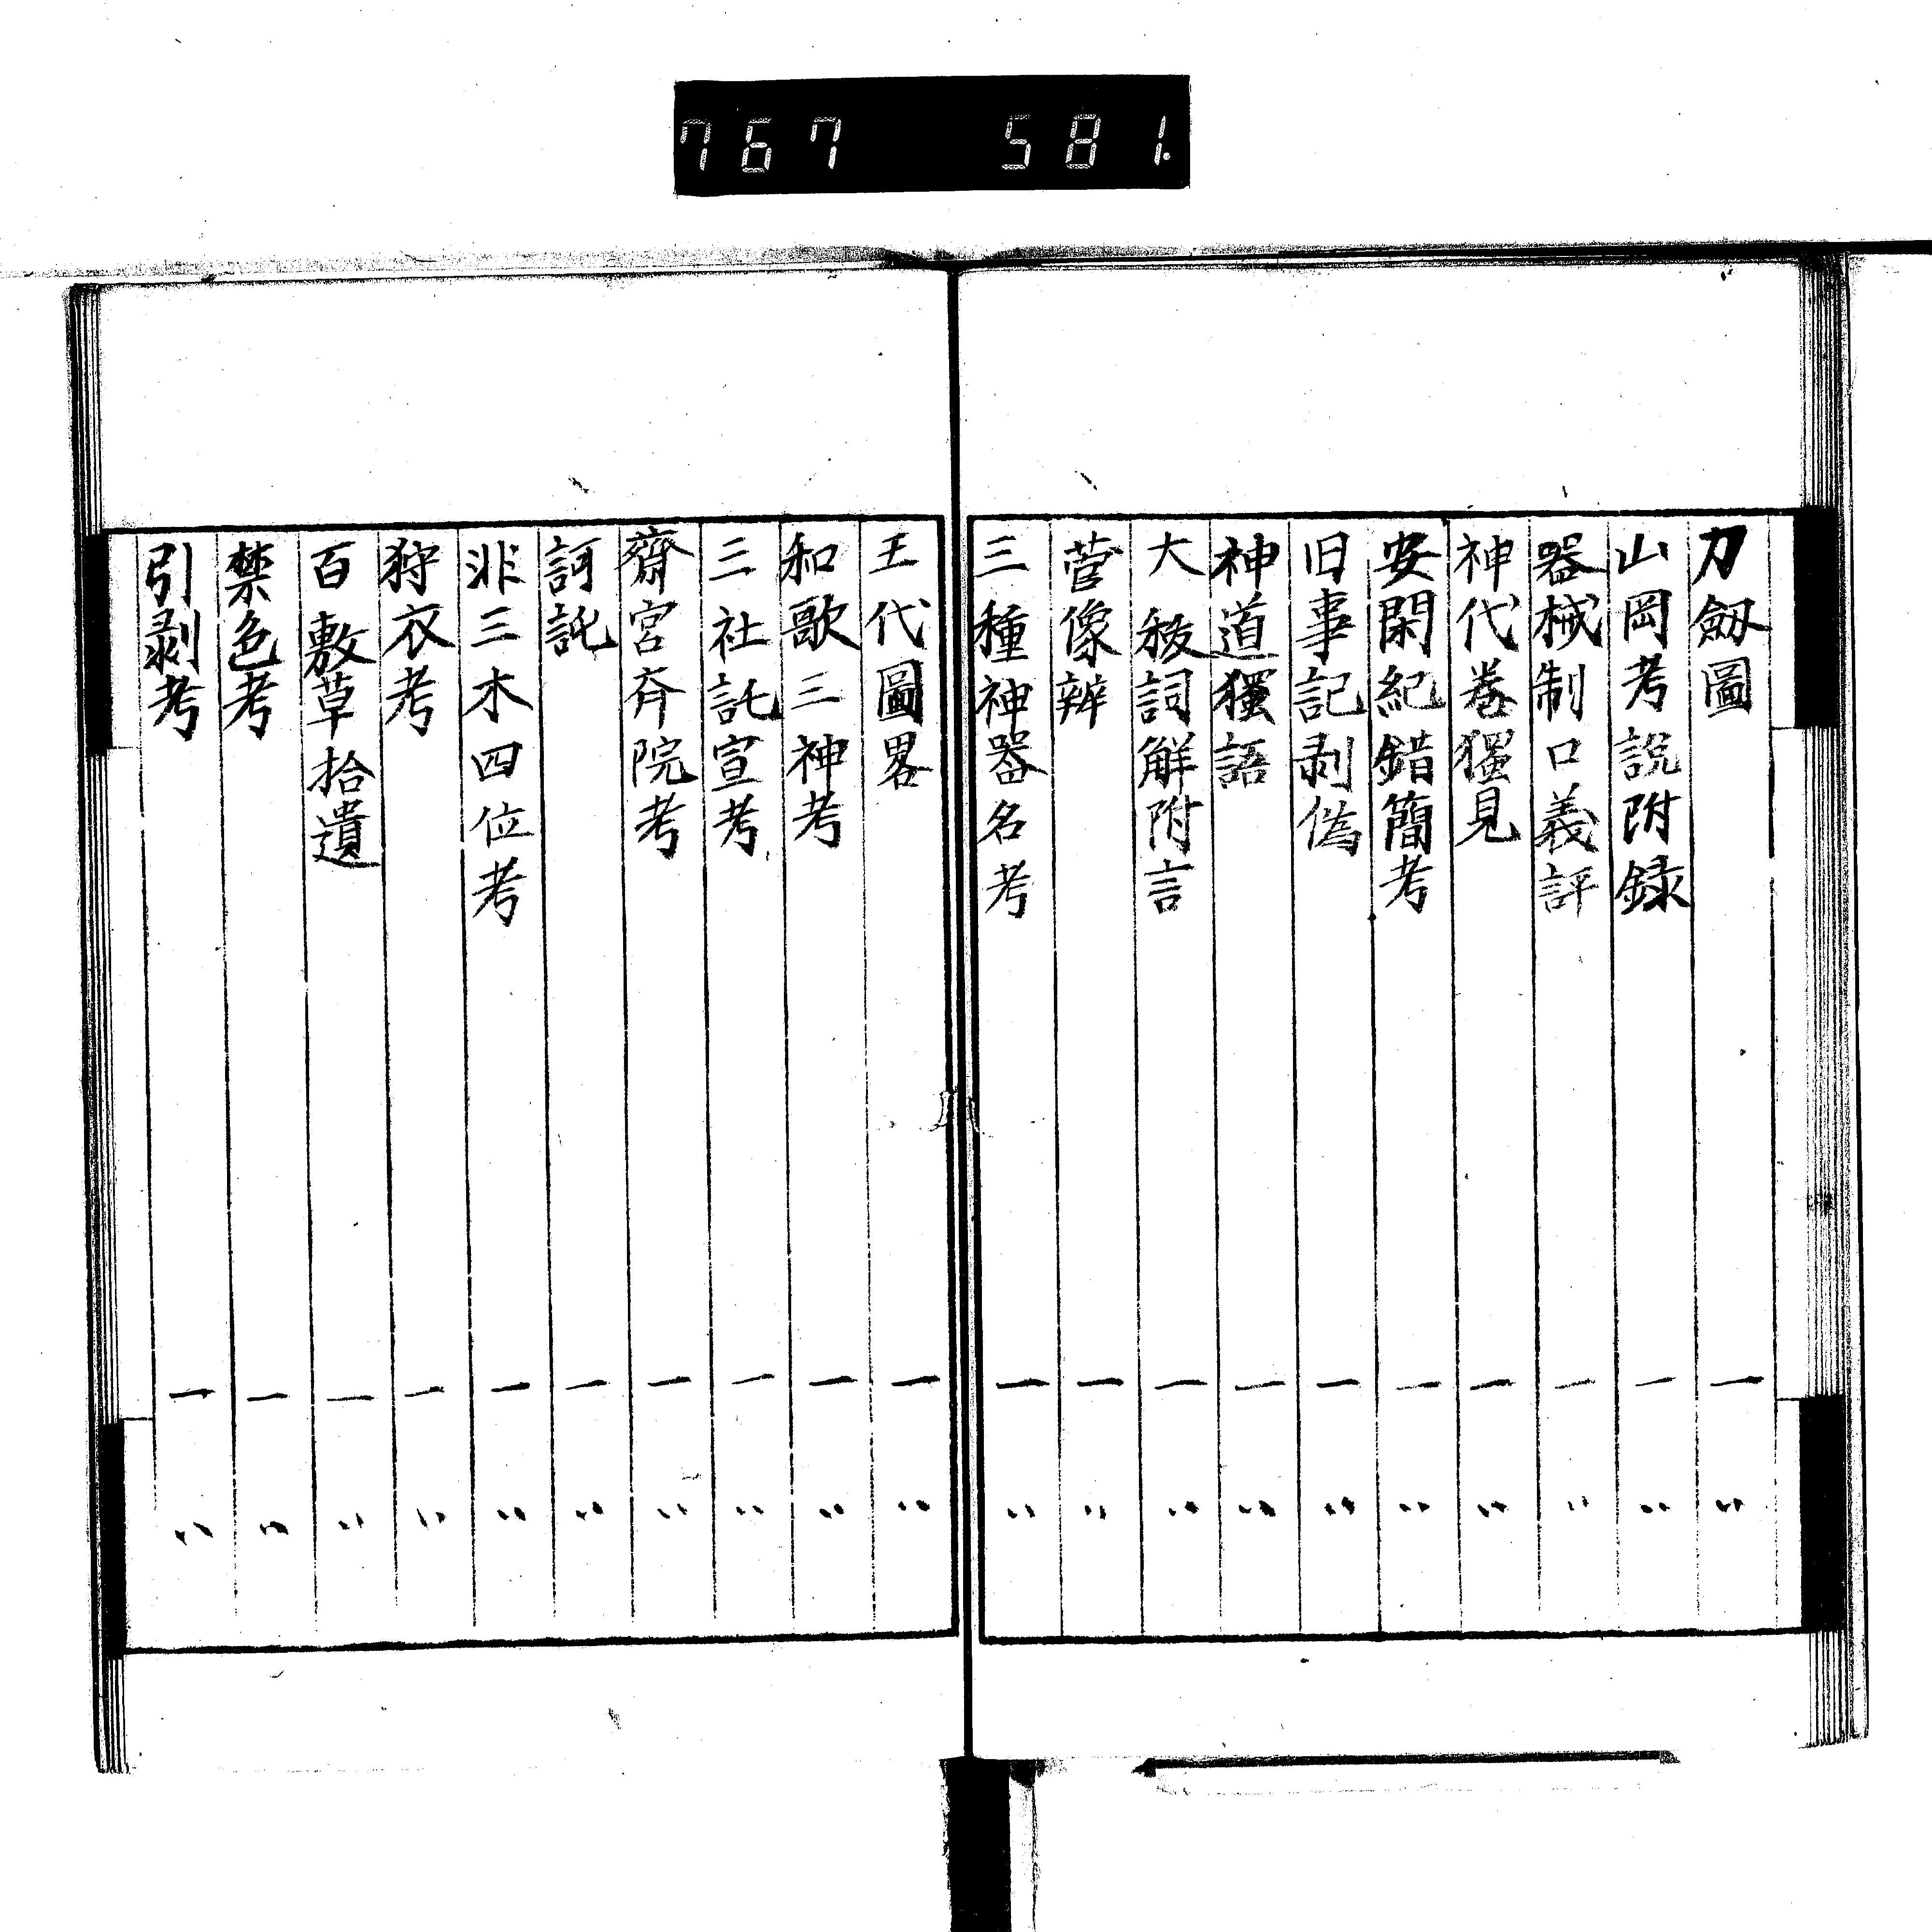 767 581.
刀劔圖 一 〃
山岡考説附録 一 〃
器械制口義評 一 〃
神代巻獨見 一 〃
安閑紀錯簡考 一 〃
旧事記剥偽 一 〃
神道獨語 一 〃
大秡詞解附言 一 〃
菅像辨 一 〃
三種神器名考 一 〃
王代圖畧 一 〃
和歌三神考 一 〃
三社託宣考 一 〃
齋宮斉院考 一 〃
訶託 一 〃
非三木四位考 一 〃
狩衣考 一 〃
百敷草拾遺 一 〃
禁色考 一 〃
引剥考 一 〃